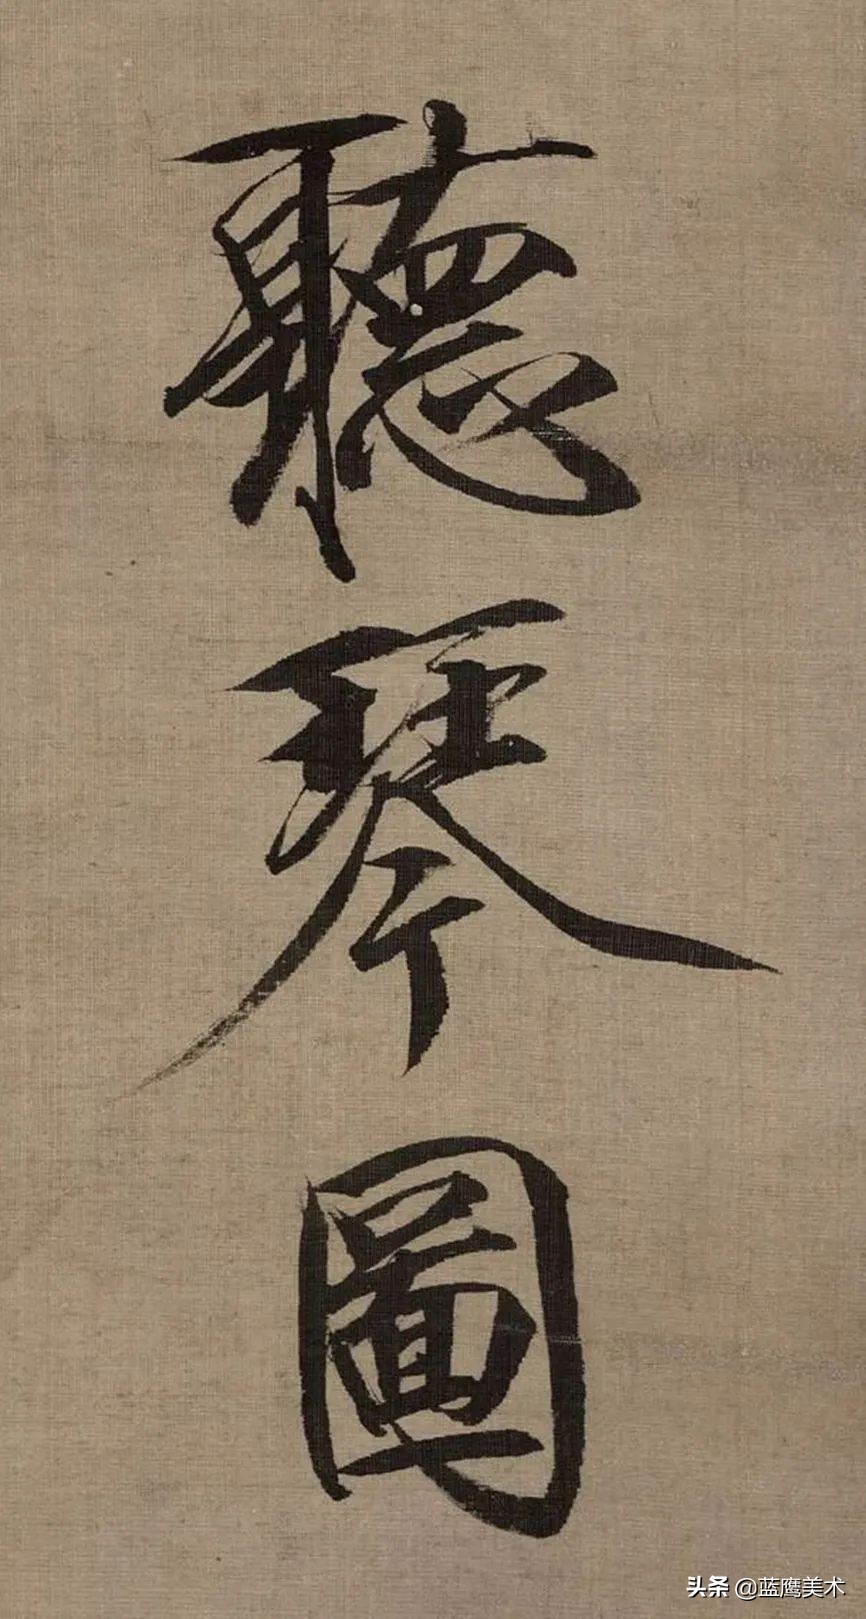 聽琴圖
头条 @蓝鹰美术